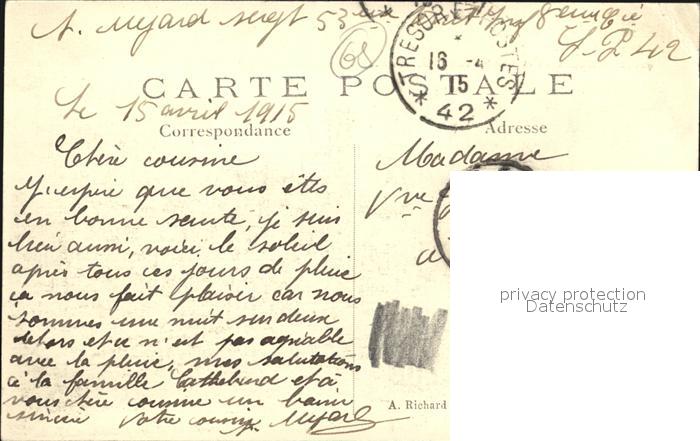 A. Myard sergt 53
S. P. 42
68
TRESOR ET POSTES
16 -4
15
* 42 *
CARTE POSTALE
Le 15 avril 1915
Correspondance
Adresse
Chère cousine
Madame
J'espère que vous êtes
Vve
en bonne sante, je suis
bien aussi, voici le soleil
à
après tous ces jours de pluie
ça nous fait plaisir car nous
sommes une nuit sur deux
dehors et ce n'est pas agréable
avec la pluie, mes salutations
à la famille et à
vous chère cousine un baiser
sincère Votre cousin Myard
A. Richard
privacy protection
Datenschutz